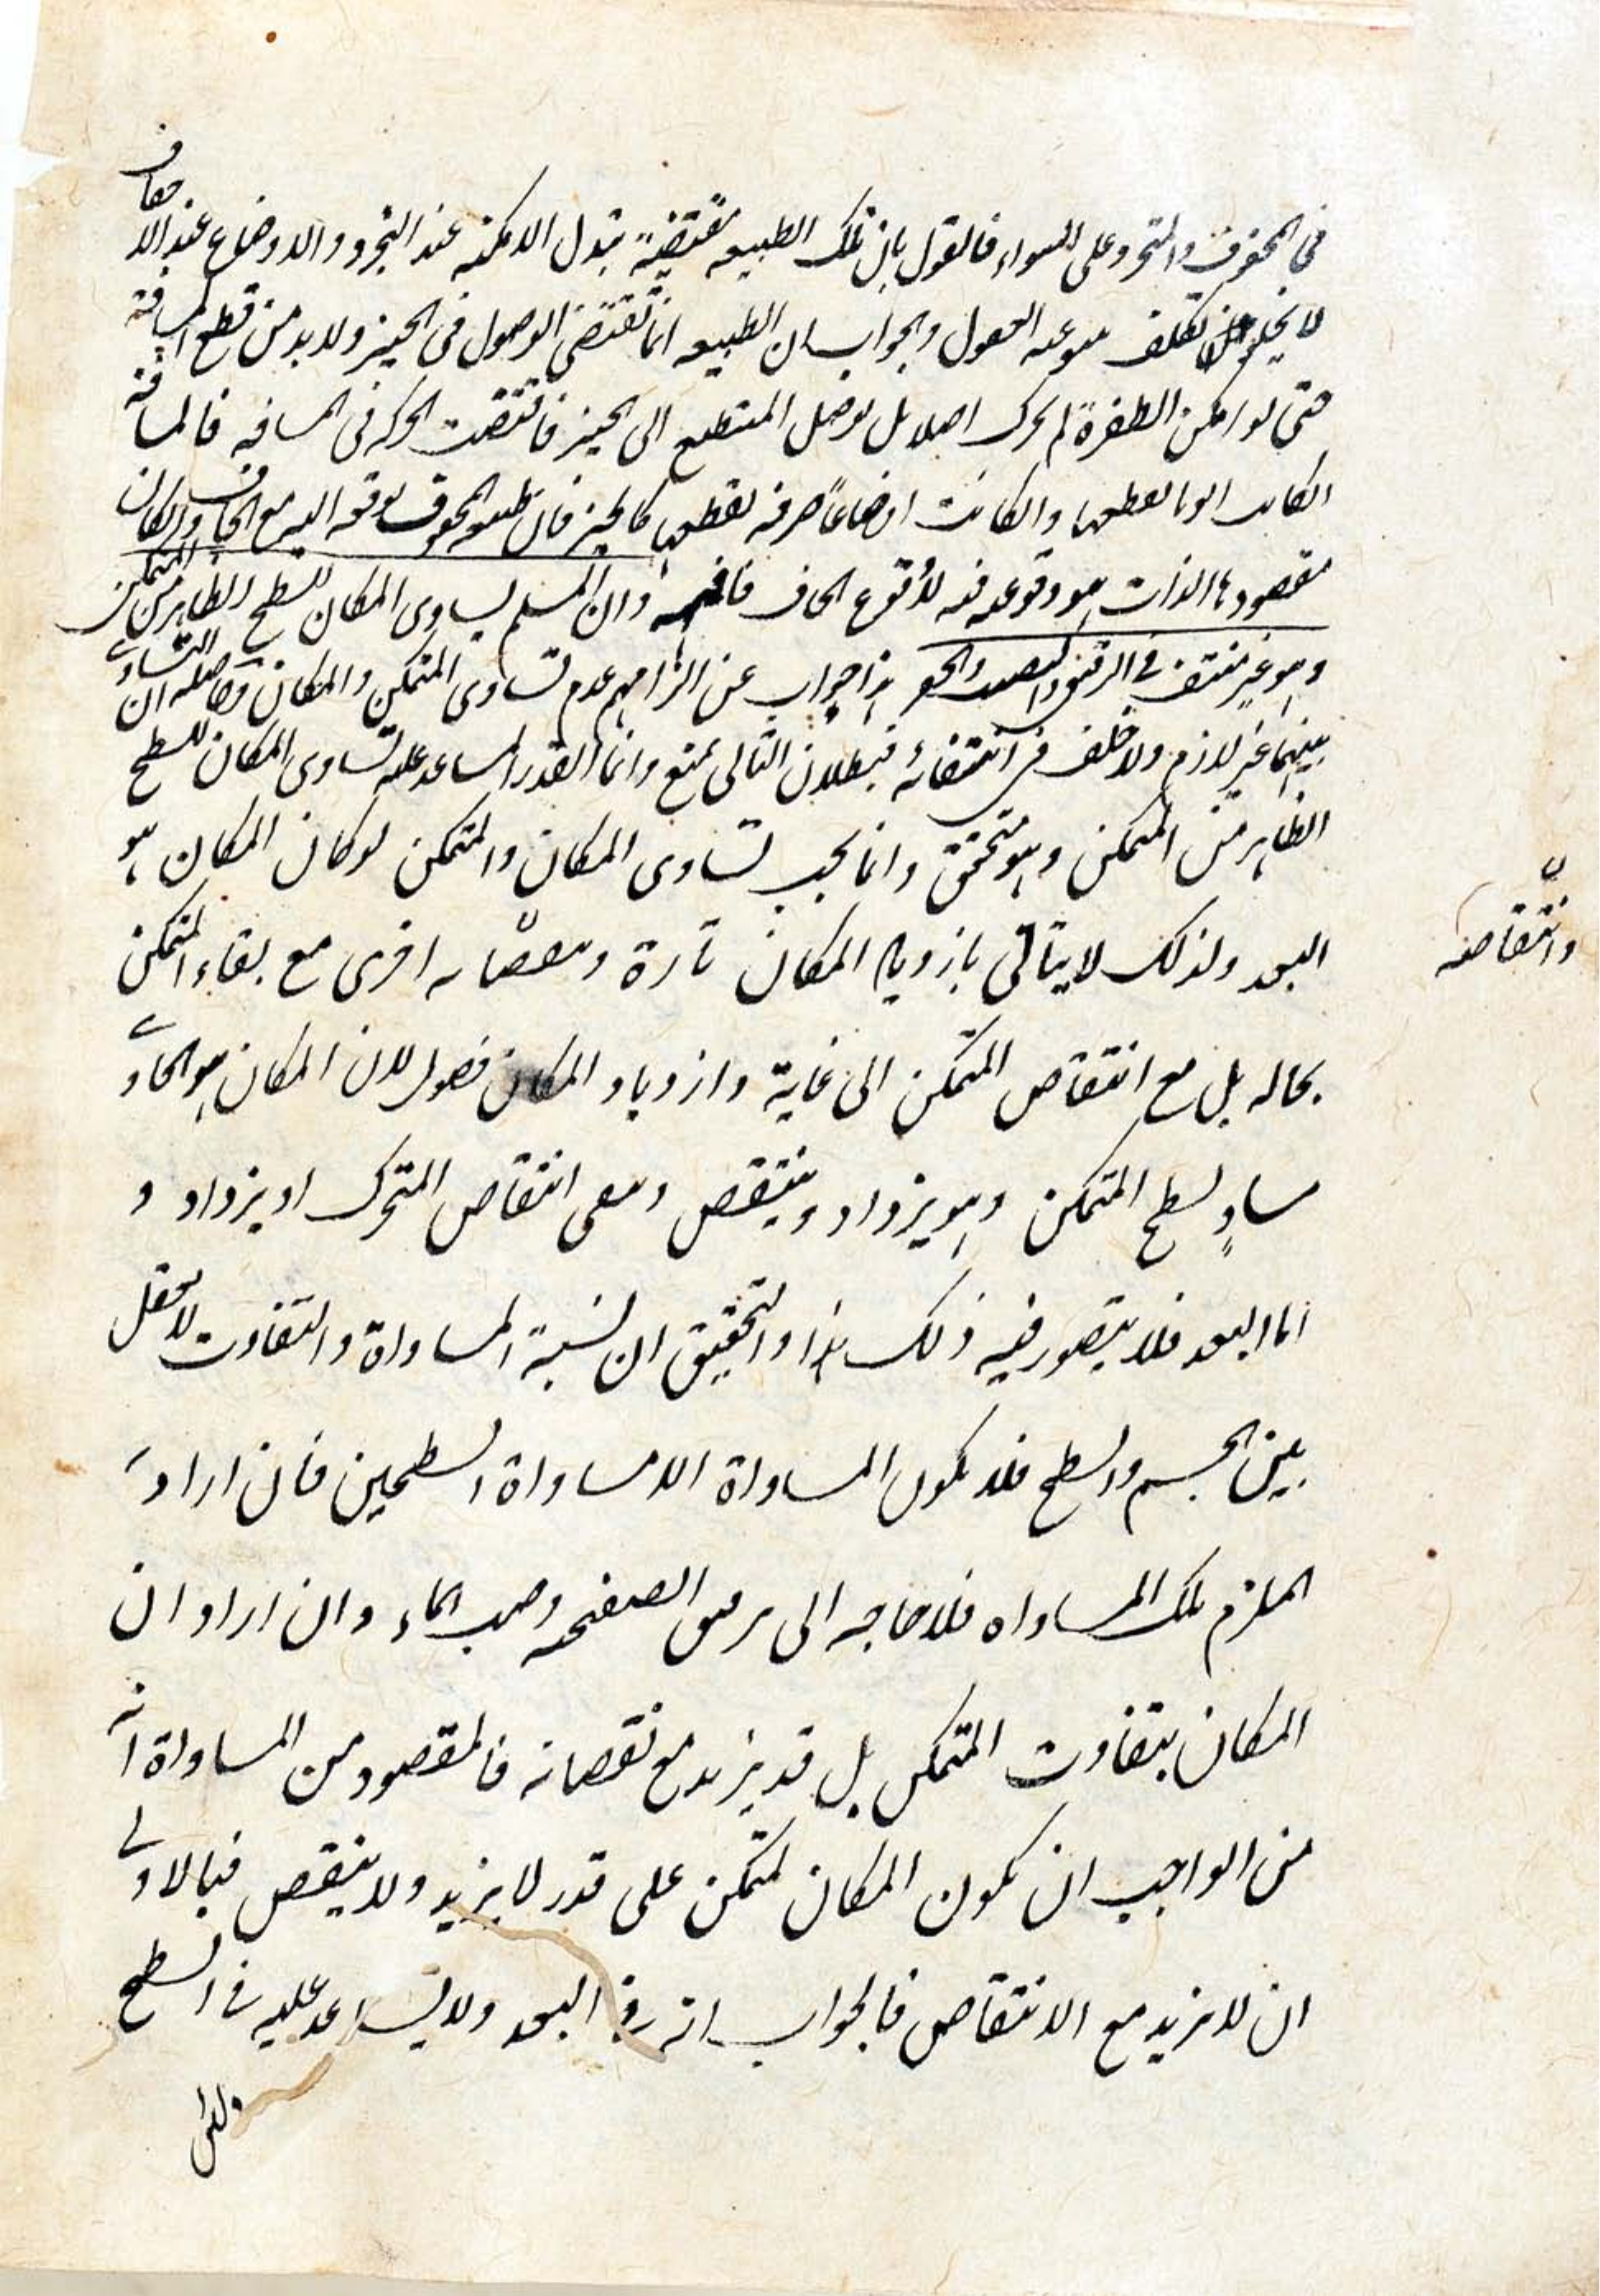 في المحفوف والمتجرد على السواء فالقول بان تلك الطبيعه مقتضية تبدل الامكنه عند التجرد والاوضاع عند الاحفاف
لا يخلو عن تكلف العقول والجواب ان الطبيعه انما تقتضى الوصول فى الحيز ولا بد من قطع المسافة
حتى لو امكن الطفرة لم يحرك اصلا بل يوصل المنتطبع الى الحيز فاقتضت الحركه فى المسافه فالمسافة
انكانت ابونا يقطعها وانكانت اوضاعاً صرفه يقطعها كالحيز فان طبيعه المحفوف وقوعه اليه مع الحاف وانكان
مقصودها الذات هو وقوعه فيه لا وقوع الحاف فافهم وان المسلم يساوى المكان للسطح الظاهر من المتمكن
وهو غير منتف فى الزق والصب والحفر هذا جواب عن الزامهم عدم تساوى المتمكن والمكان وحاصله ان التساوى
بينهما غير لازم ولا خلف فى انتفائه فبطلان التالى يمنع وانما القدر المساعد عليه تساوى المكان للسطح
الظاهر من المتمكن وهو متحقق وانما يجب تساوى المكان والمتمكن لو كان المكان هو
البعد ولذلك لا يتاتى بازدياد المكان تارة ونقصانه اخرى مع بقاء المتمكن
وانتقاصه
بحاله بل مع انتقاص المتمكن الى غاية وازدياد المكان فصول لان المكان هو الحاوى
مساوٍ لسطح المتمكن وهو يزداد وينتقص ومعى انتقاص المتحرك او يزداد و
اما البعد فلا يتصور فيه ذلك هذا والتحقيق ان نسبة المساواة والتفاوت لا تعقل
بين الجسم والسطح فلا يكون المساواة الا مساواة السطحين فان اراد
الملزم تلك المساواه فلا حاجه الى الصفحه وصب الماء وان اراد ان
المكان يتفاوت المتمكن بل قد يزيد مع نقصانه فالمقصود من المساواة انه
من الواجب ان يكون المكان لمتمكن على قدر لا يزيد ولا ينقص فبالاولى
ان لا يزيد مع الانتقاص فالجواب انه فى البعد ولا يساعد عليه فى السطح
ولئن